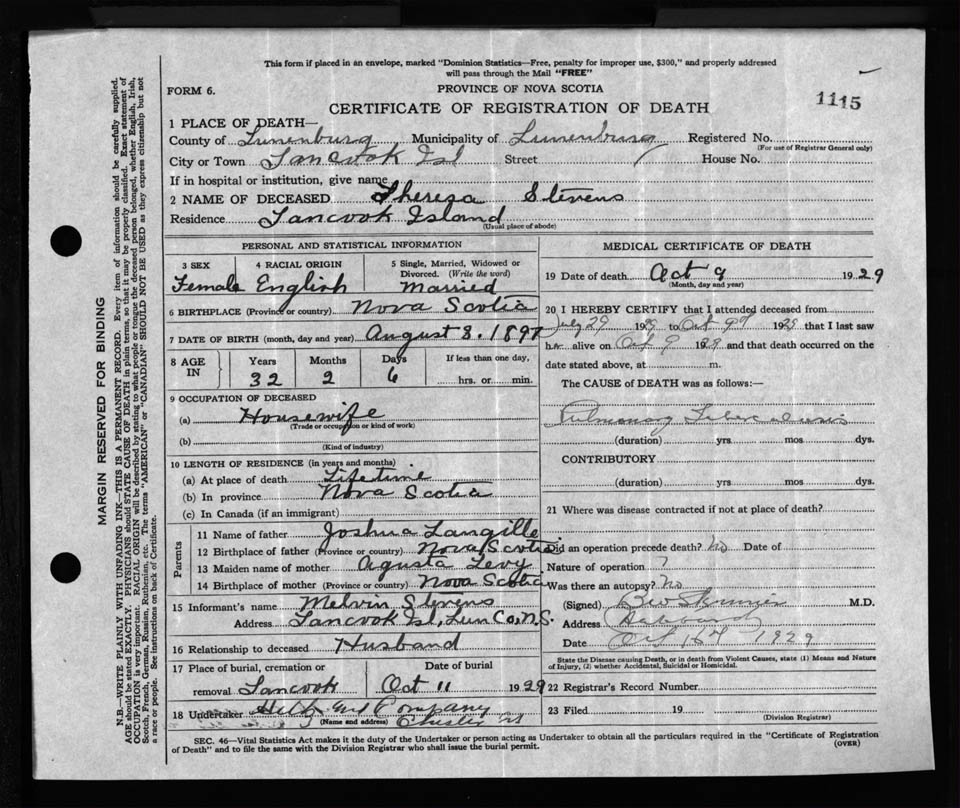 This form if placed in an envelope, marked "Dominion Statistics—Free, penalty for improper use, $300," and properly addressed
will pass through the Mail "FREE"
FORM 6.
PROVINCE OF NOVA SCOTIA
CERTIFICATE OF REGISTRATION OF DEATH
1115
MARGIN RESERVED FOR BINDING
N.B.—WRITE PLAINLY WITH UNFADING INK—THIS IS A PERMANENT RECORD. Every item of information should be carefully supplied.
AGE should be stated EXACTLY. PHYSICIANS should STATE CAUSE OF DEATH in plain terms, so that it may be properly classified. Exact statement of
OCCUPATION is very important. RACIAL ORIGIN will be described by stating to what people or tongue the deceased person belonged, whether English, Irish,
Scotch, French, German, Russian, Ruthenian, etc. The terms "AMERICAN" or "CANADIAN" SHOULD NOT BE USED as they express citizenship but not
a race or people. See instructions on back of Certificate.
1 PLACE OF DEATH—
County of Lunenburg Municipality of Lunenburg Registered No.
(For use of Registrar General only)
City or Town Tancook Isl Street House No.
If in hospital or institution, give name
2 NAME OF DECEASED Theresa Stevens
Residence Tancook Island
(Usual place of abode)
PERSONAL AND STATISTICAL INFORMATION
3 SEX 4 RACIAL ORIGIN 5 Single, Married, Widowed or
Divorced. (Write the word)
Female English Married
6 BIRTHPLACE (Province or country) Nova Scotia
7 DATE OF BIRTH (month, day and year) August 8. 1897
8 AGE IN Years Months Days If less than one day,
32 2 6 hrs. or min.
9 OCCUPATION OF DECEASED
(a) Housewife
(Trade or occupation or kind of work)
(b)
(Kind of industry)
10 LENGTH OF RESIDENCE (in years and months)
(a) At place of death Lifetime
(b) In province Nova Scotia
(c) In Canada (if an immigrant)
Parents
11 Name of father Joshua Langille
12 Birthplace of father (Province or country) Nova Scotia
13 Maiden name of mother Agusta Levy
14 Birthplace of mother (Province or country) Nova Scotia
15 Informant's name Melvin Stevens
Address Tancook Isl, Lun Co, N.S.
16 Relationship to deceased Husband
17 Place of burial, cremation or Date of burial
removal Tancook Oct 11 1929
18 Undertaker and Company
(Name and address) Chester NS
MEDICAL CERTIFICATE OF DEATH
19 Date of death Oct 9 1929
(Month, day and year)
20 I HEREBY CERTIFY that I attended deceased from
July 29 1929 to Oct 9th 1929 that I last saw
her alive on Oct 9 1929 and that death occurred on the
date stated above, at m.
The CAUSE of DEATH was as follows:—
Pulmonary Tuberculosis
(duration) yrs mos dys.
CONTRIBUTORY
(duration) yrs. mos. dys.
21 Where was disease contracted if not at place of death?
Did an operation precede death? No Date of
Nature of operation ?
Was there an autopsy? No
(Signed) M.D.
Address Hubbards
Date Oct 1929
State the Disease causing Death, or in death from Violent Causes, state (1) Means and Nature
of Injury, (2) whether Accidental, Suicidal or Homicidal.
22 Registrar's Record Number
23 Filed 19
(Division Registrar)
SEC. 46—Vital Statistics Act makes it the duty of the Undertaker or person acting as Undertaker to obtain all the particulars required in the "Certificate of Registration
of Death" and to file the same with the Division Registrar who shall issue the burial permit.
(OVER)